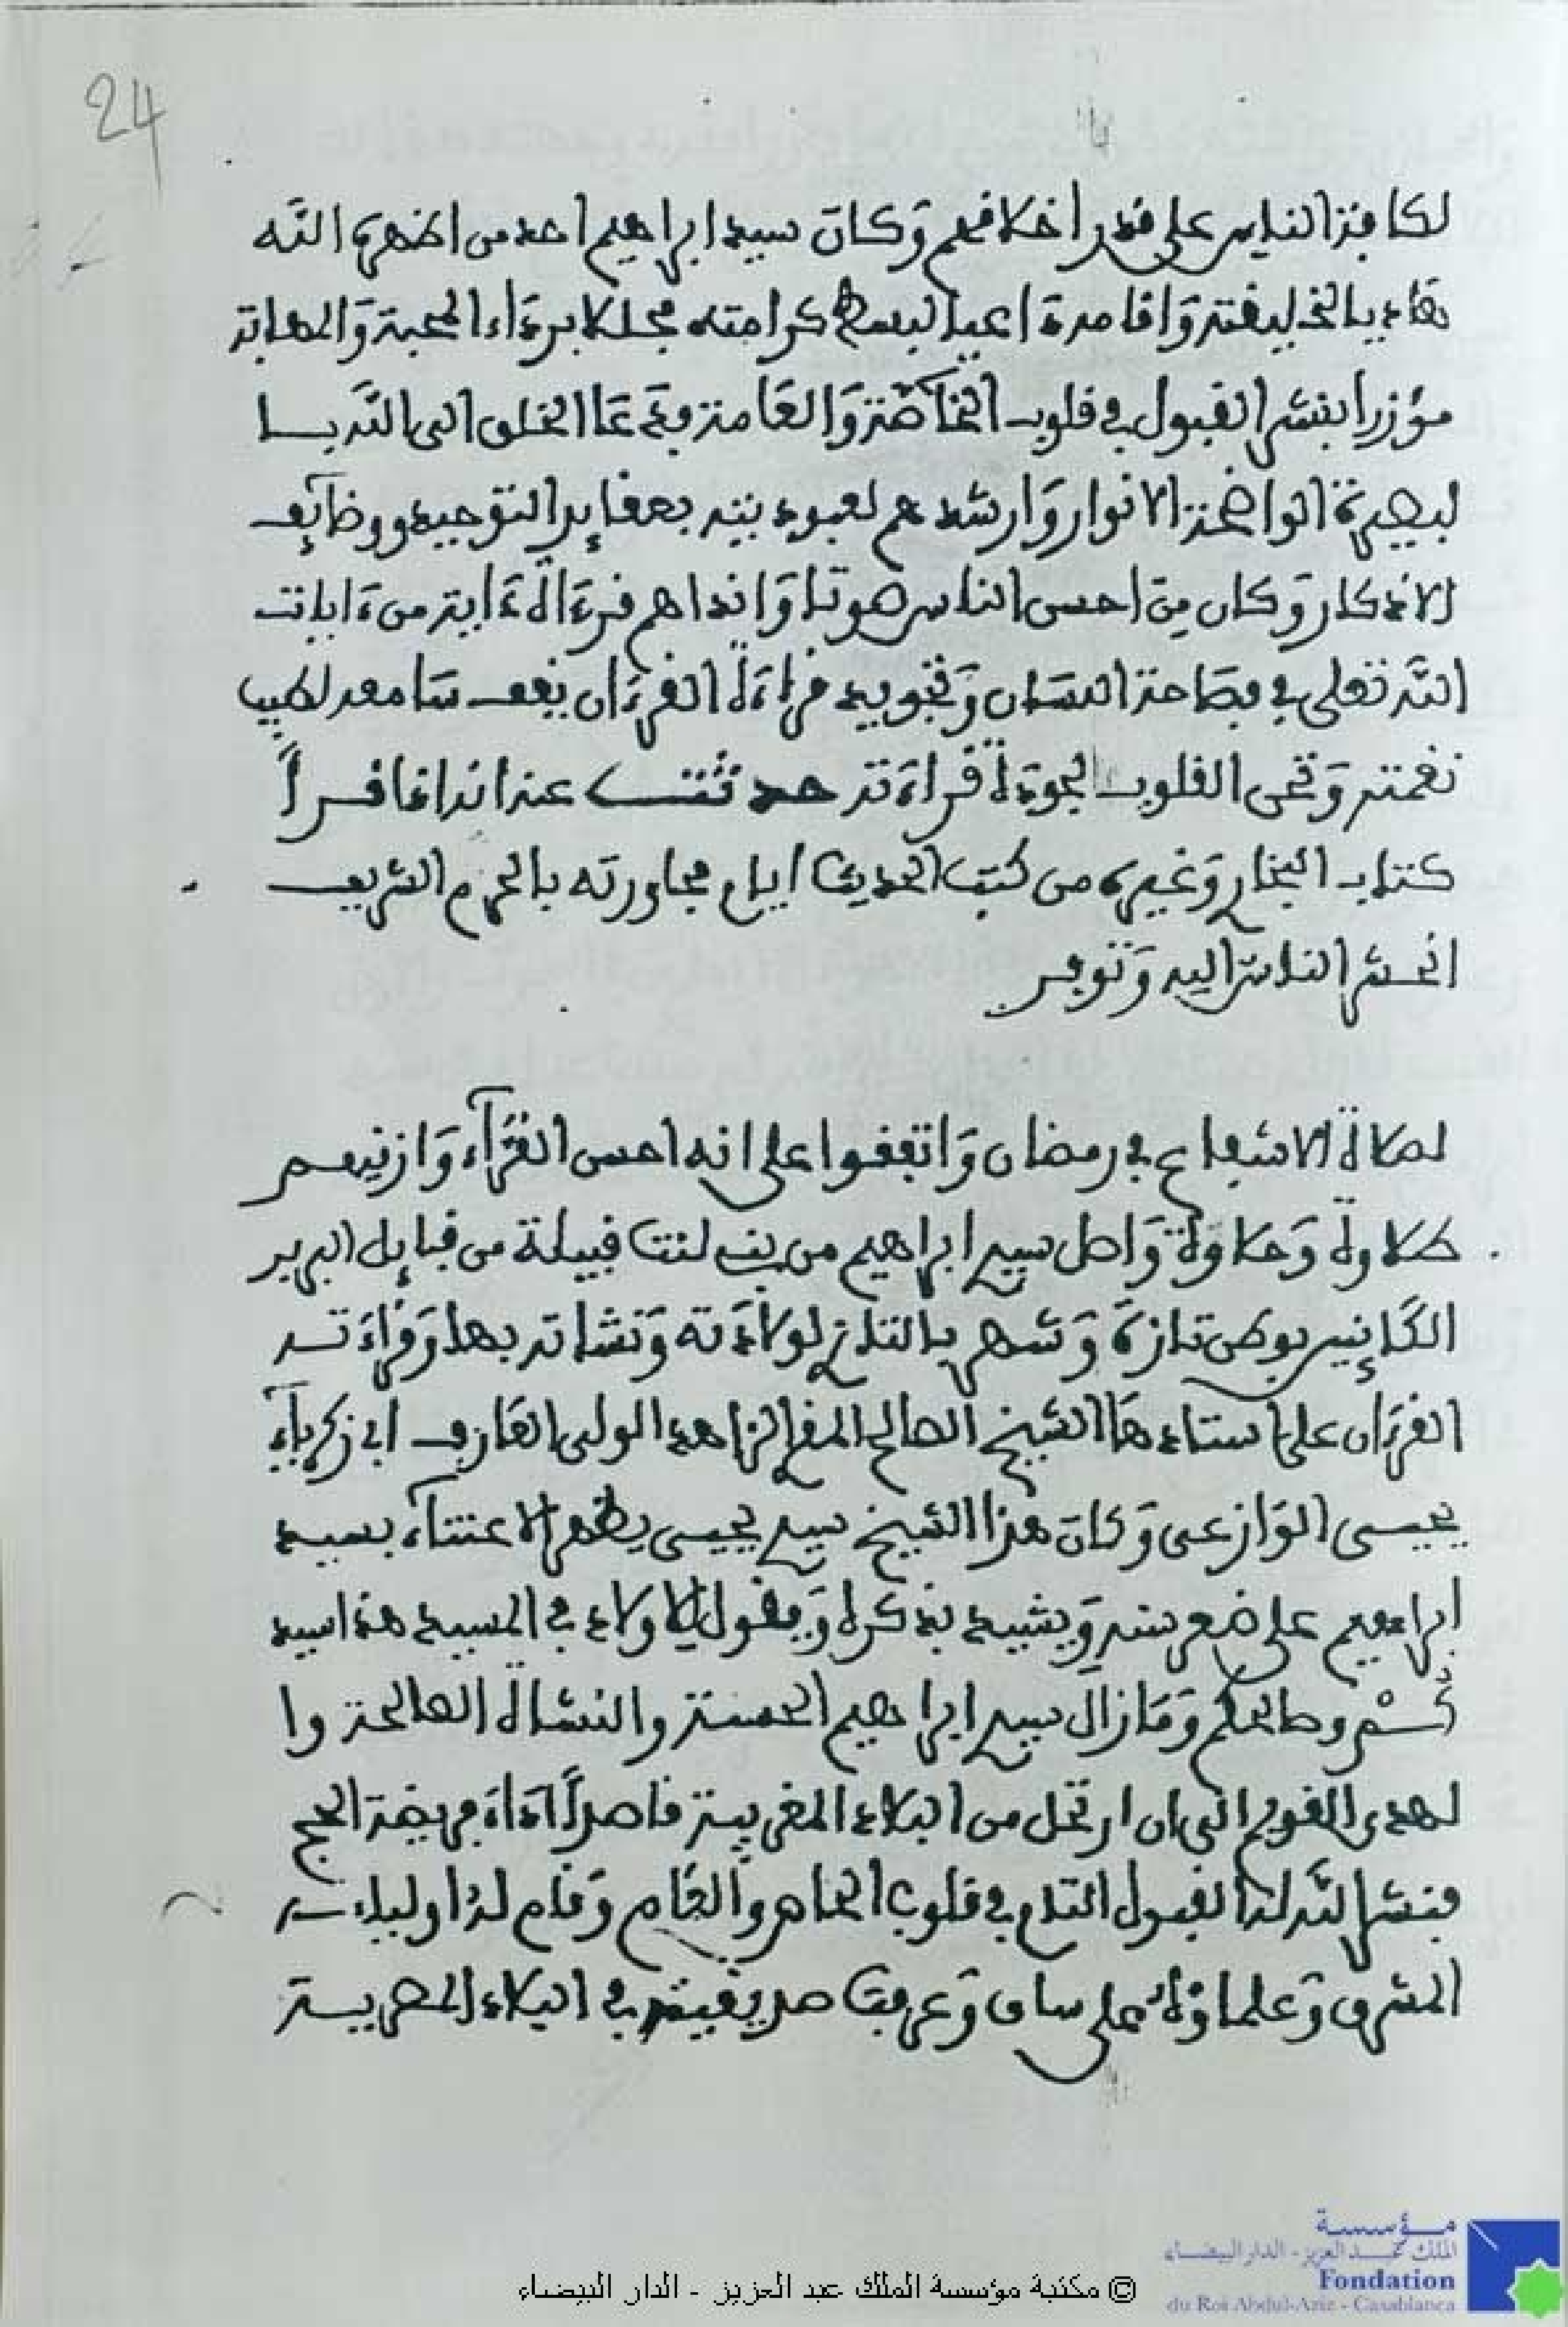 24
لكافة الناس على قدر اخلاقهم وَكانَ سيد ابراهيم احد من اظهره اللّه
هَاديا لخليقته وَاقامه داعيا لبسط كرامته مجللا برداء المحبة وَالمهابة
مؤزرا بنشر القبول في قلوب الخآصّة وَالعَامة فدَعَا الخلق الى اللّه با
لبصيرة الواضحة الانوار وَارشدهم لعبوديته بعقايد التوحيد ووظآيف
الاذكار وَكان مِنَ احسن الناس صوتا وَانداهم قرءاةً داية من ءايات
اللّه تعلى في فصَاحة اللسَان وَتجويد قراءة القرءَان يقف سَامعه لطيب
نغمته وَتحى القلوب لجودة قراءَته حدثت عنه انه اذا قــرأ
كتاب البخار وَغيره من كتب الحديث ايام مجاورته بالحرم الشريف
انحشر الناس اليه وَتوفر
لصلاة الاشفاع في رمضان وَاتفقوا على انه احسن القرّآء وَازينهم
طلاوة وَحلاوَة وَاصل سيد ابراهيم من بنى لنت قبيلة من قبايل البربر
الكَاينين بوطن تازة وَشهر بالتازي لولادَته وَنشاته بها وَقراءَتــه
القرءَان على استاذهَا الشيخ الصالح المقر الزاهد الولى العَارف ابى زكرياء
يحيــى الوَازعى وَكانَ هذا الشيخ سيد يحيــى يظهر الاعتنآء بسيد
ابراهيم على صغر سنه وَيشيد بذكره وَيقول للاولاد في المسيد هذا سيد
كــم وصالحكم وَمَا زال سيد ابراهيم الحسنة والنشاة الصالحة وا
لهدى القويم الى ان ارتحل من البلاد المغربية قاصداً اداءَ فريضة الحج
فنشر اللّه له القبول التام في قلوب الخاص والعَام وَقام له اولياء
المشرق وَعلماؤهُ على ساق وَعرفت صديقيته في البلاد المصريــة
مؤسسة
الملك عبد العزيز - الدار البيضاء
Fondation
du Roi Abdul-Aziz - Casablanca
© مكتبة مؤسسة الملك عبد العزيز - الدار البيضاء